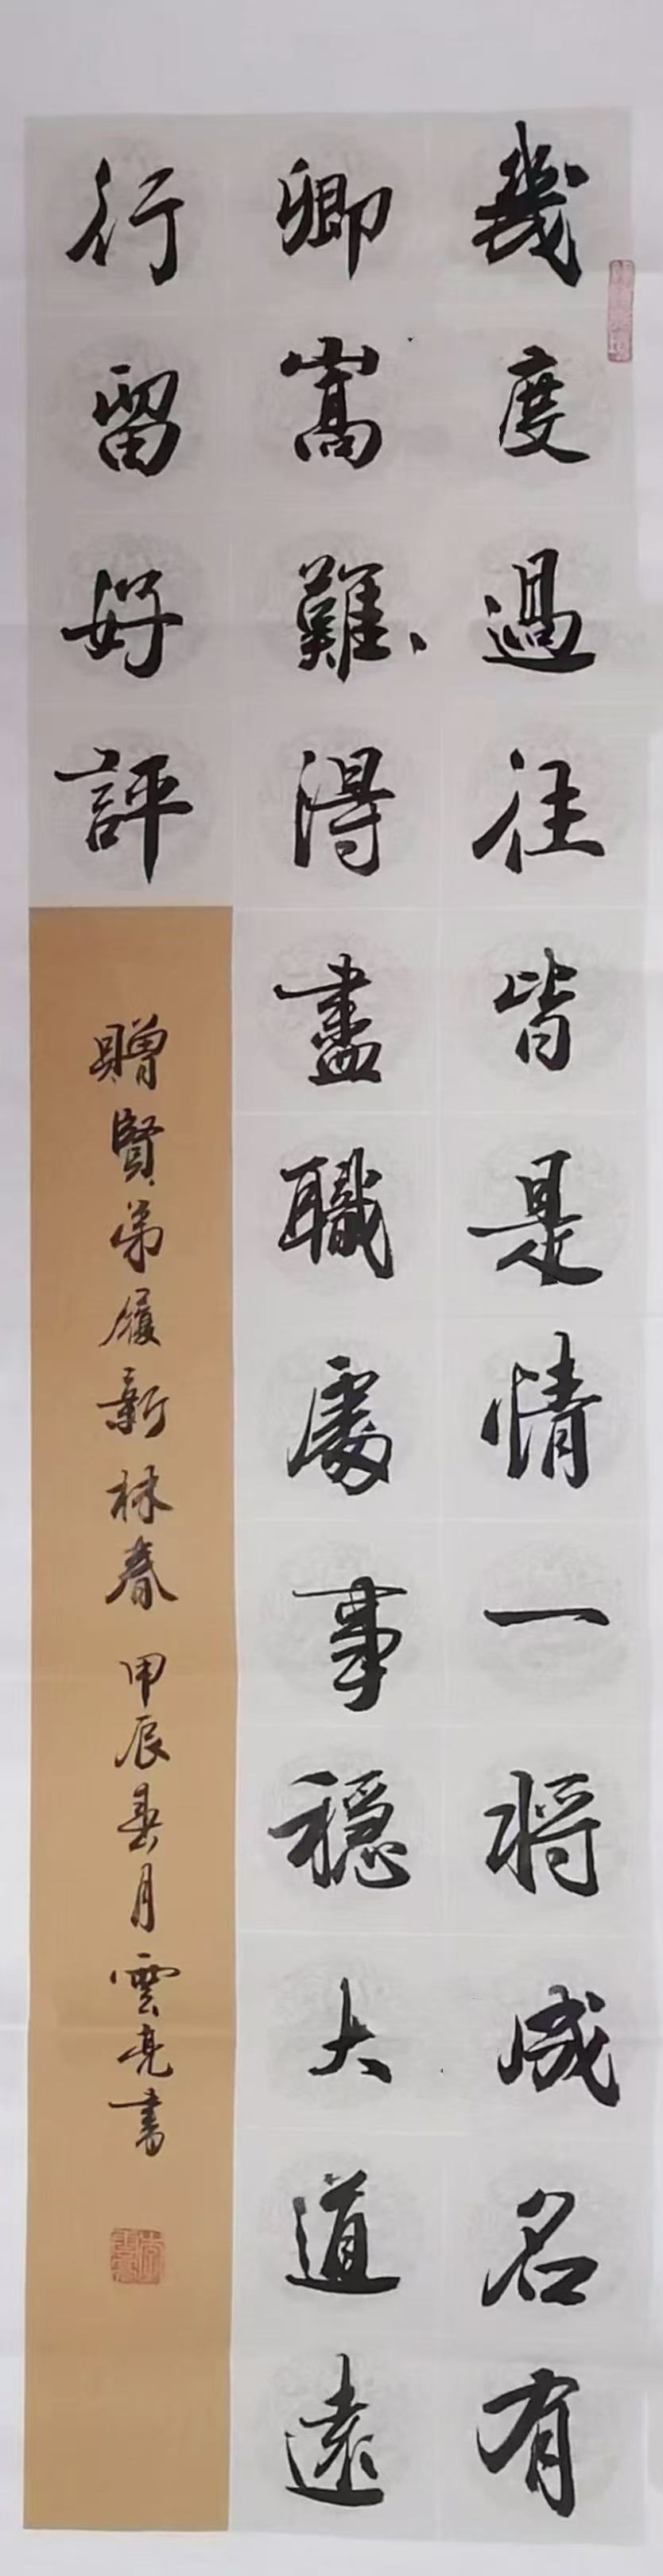 幾度過往皆是情一將成名有
卿嵩難得盡職處事穩大道遠
行留好評
贈賢弟履新林春 甲辰春月雲亮書